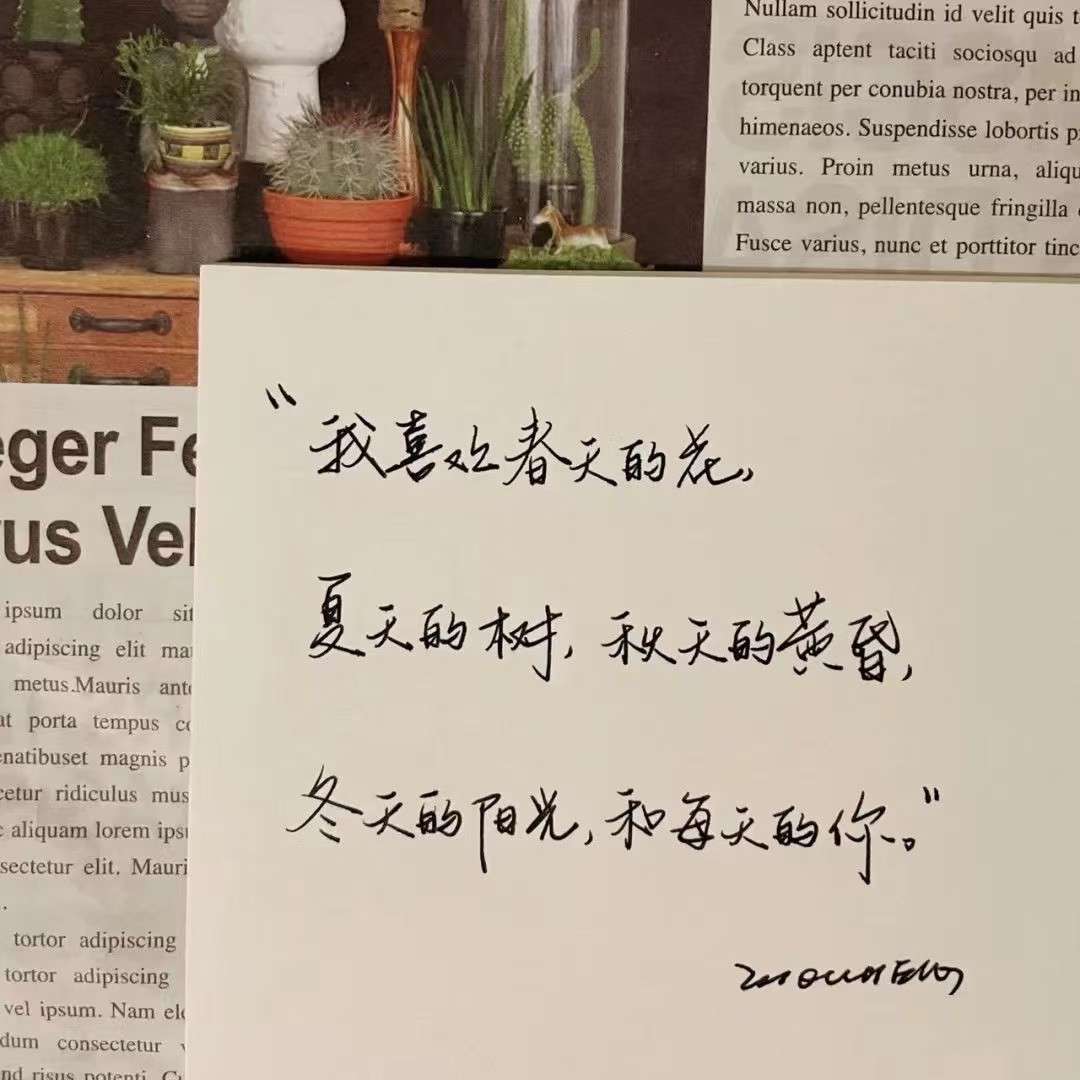 Nullam sollicitudin id velit quis t
Class aptent taciti sociosqu ad
torquent per conubia nostra, per in
himenaeos. Suspendisse lobortis p
varius. Proin metus urna, aliqu
massa non, pellentesque fringilla
Fusce varius, nunc et porttitor tinc
eger Fe
us Vel
ipsum dolor sit
adipiscing elit mau
metus.Mauris ante
at porta tempus co
enatibuset magnis p
cetur ridiculus mus
aliquam lorem ipsu
sectetur elit. Mauri
tortor adipiscing
tortor adipiscing
vel ipsum. Nam ele
dum consectetur v
nd risus potenti. Cu
"我喜欢春天的花,
夏天的树, 秋天的黄昏,
冬天的阳光, 和每天的你。"